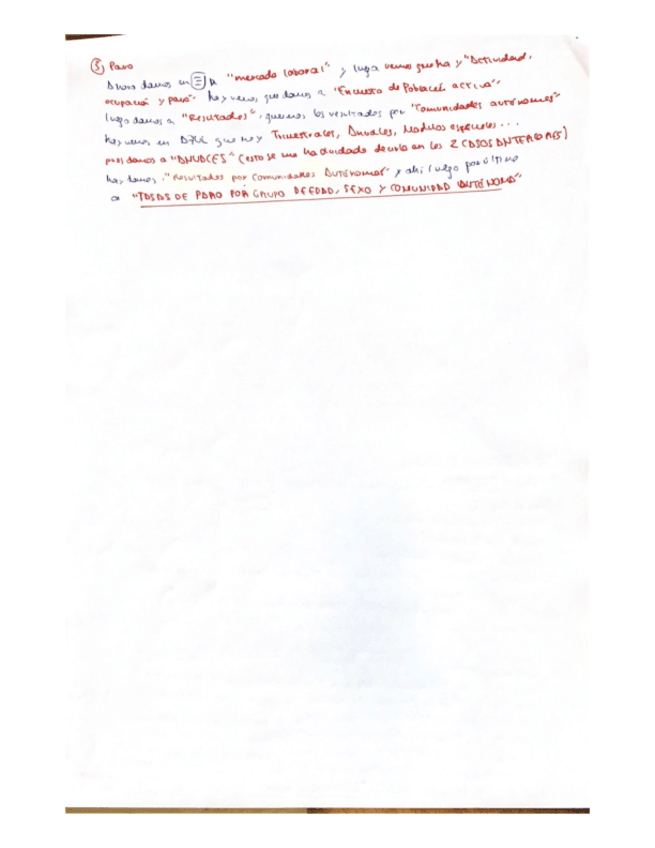 ③ Paro
Ahora damos en ☰ a "mercado laboral" y luego vemos que ha y "Actividad,
ocupación y paro". hay vemos que damos a "Encuesta de Población activa"
luego damos a "Resultados", queremos los resultados por "Comunidades autónomas"
hay vemos en que hay Trimestrales, Anuales, Modulos especiales...
pues damos a "ANUALES" (esto se me ha olvidado decirlo en los 2 CASOS ANTERIORES)
hay damos "Resultados por Comunidades Autónomas" y ahí luego por último
a "TASAS DE PARO POR GRUPO DE EDAD, SEXO Y COMUNIDAD AUTÓNOMA"